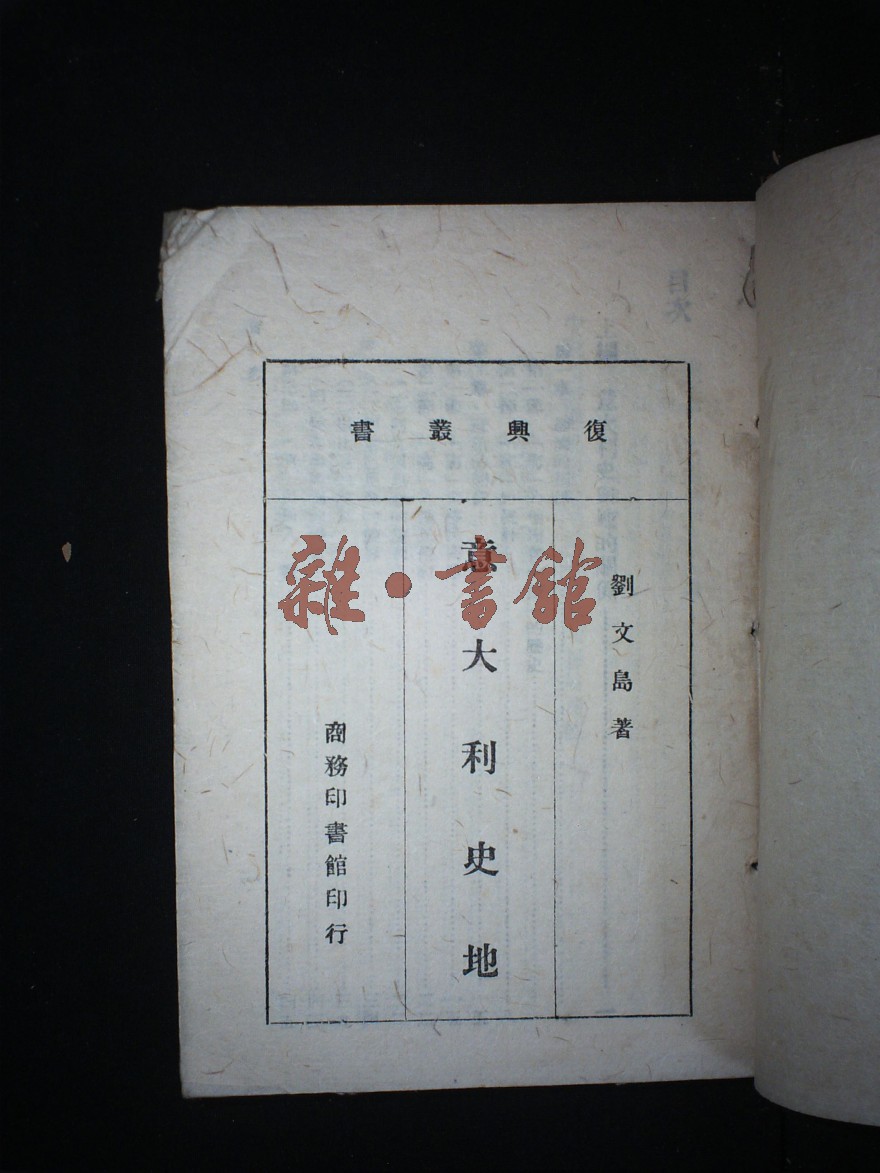 復興叢書
劉文島著
意大利史地
商務印書館印行
雜·書館
目次